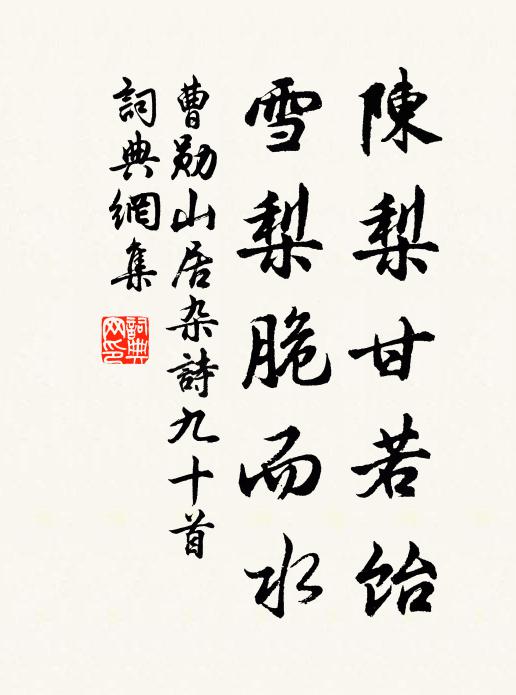 陳梨甘若飴
雪梨脆而水
曹勛山居杂詩九十首
詞典網集
詞典网印